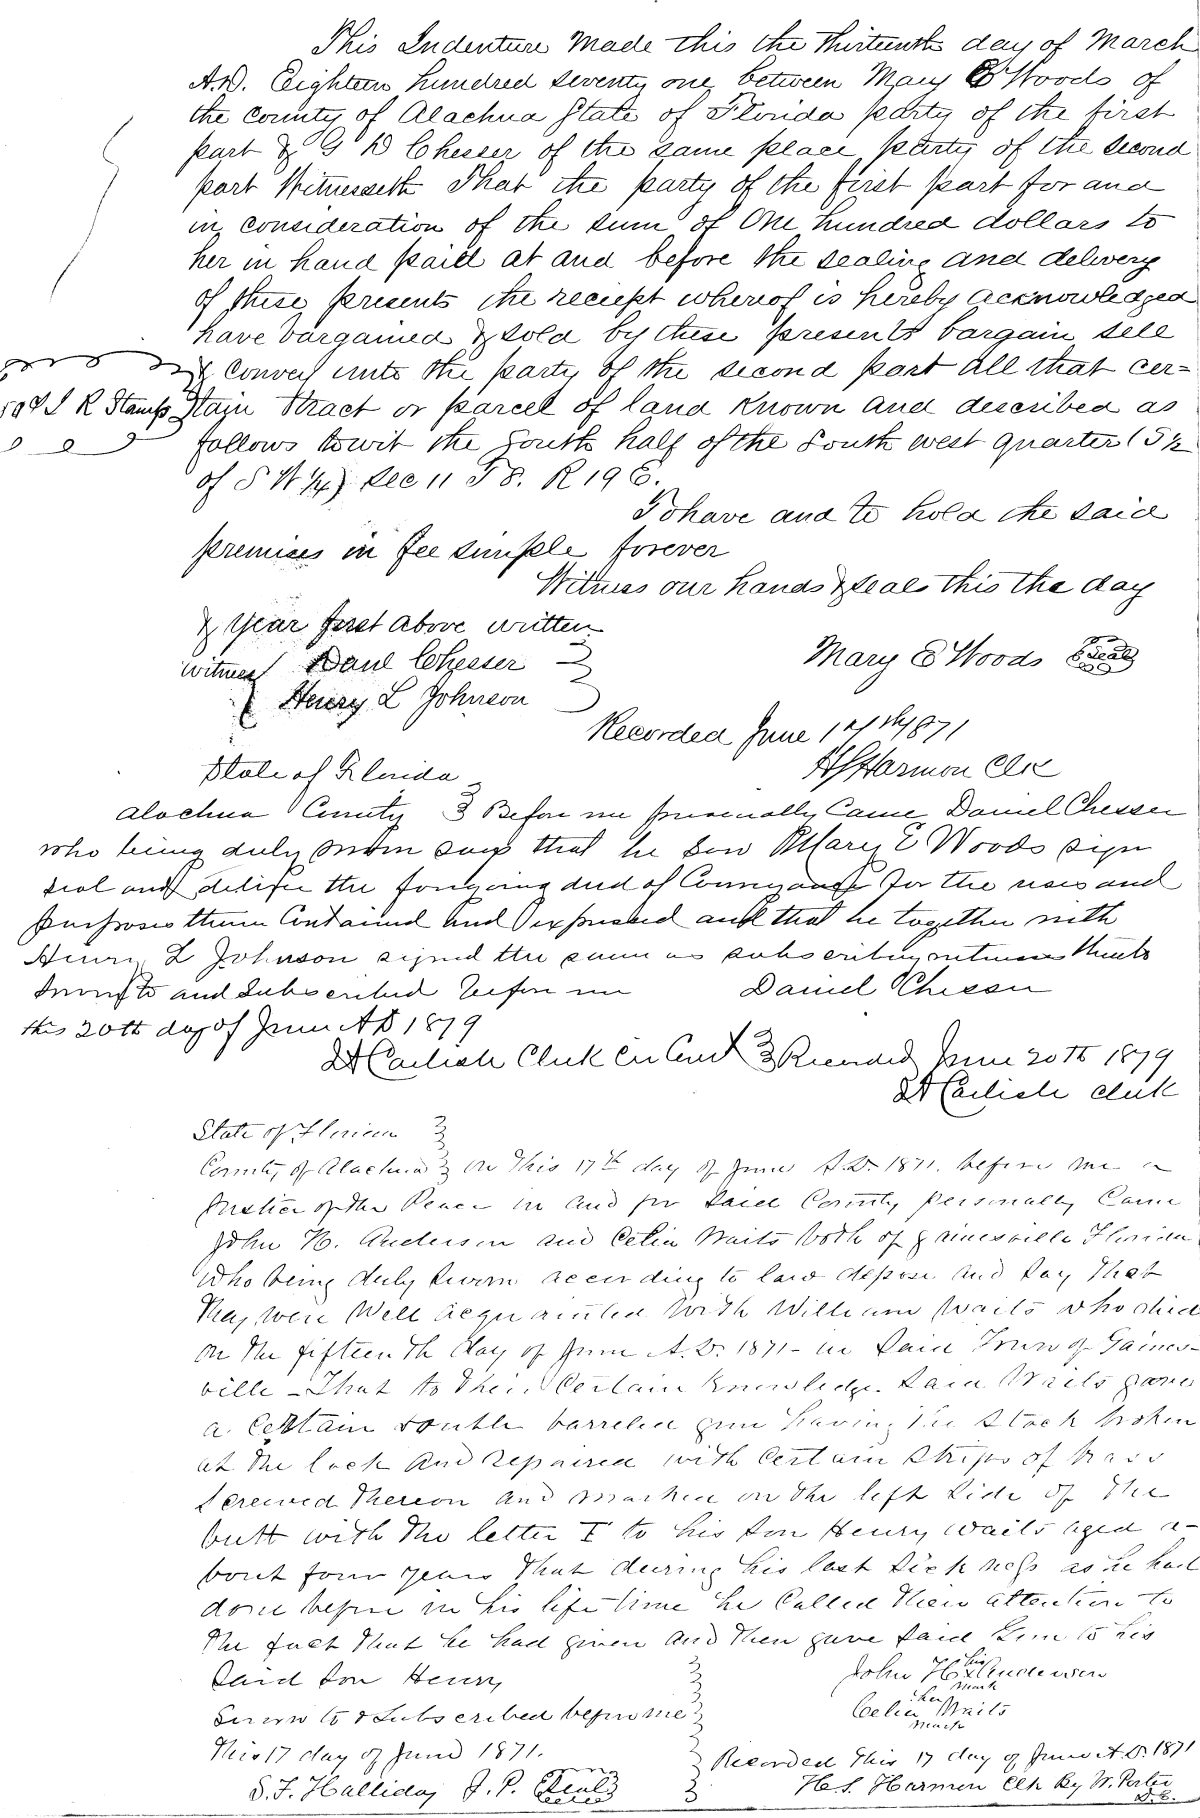 This Indenture Made this the thirteenth day of March
A.D. Eighteen hundred seventy one between Mary E Woods of
the county of Alachua State of Florida party of the first
part & G D Chesser of the same place party of the second
part Witnesseth That the party of the first part for and
in consideration of the sum of One hundred dollars to
her in hand paid at and before the sealing and delivery
of these presents the reciept whereof is hereby acknowledged
have bargained & sold by these presents bargain sell
& convey unto the party of the second part all that cer=
50¢ I R Stamps
tain tract or parcel of land known and described as
follows towit the South half of the South west quarter (S½
of S W ¼) Sec 11 T 8. R 19 E.
To have and to hold the said
premises in fee simple forever
Witness our hands & seals this the day
& year first above written
witness Danl Chesser
Mary E Woods Seal
Henry L Johnson
Recorded June 1871
H S Harmon Clk
State of Florida
Alachua County Before me personally Came Daniel Chesser
who being duly sworn says that he saw Mary E Woods sign
seal and deliver the foregoing deed of Conveyance for the uses and
purposes therein Contained and expressed and that he together with
Henry L Johnson signed the same as subscribing witnesses thereto
Sworn to and Subscribed before me Daniel Chesser
this 20th day of June A D 1879
Carlisle Clerk Cir Court Recorded June 20th 1879
Carlisle Clerk
State of Florida
County of Alachua On this 17th day of June A.D. 1871. before me a
Justice of the Peace in and for Said County personally Came
John H. Anderson and Celia Waits both of gainesville Florida
who being duly sworn according to law depose and say that
they were well acquainted with William Waits who died
on the fifteenth day of June A.D. 1871 - in Said Town of Gaines-
ville - That to their Certain knowledge Said Waits gave
a Certain double barreled gun having the stock broken
at the lock and repaired with certain strips of brass
screwed thereon and marked on the left side of the
butt with the letter I to his son Henry Waits aged a-
bout four years that during his last sickness as he had
done before in his life time he called their attention to
the fact that he had given and then gave said Gun to his
said son Henry
John H his x mark Anderson
Sworn to & Subscribed before me
Celia her mark Waits
This 17 day of June 1871.
Recorded This 17 day of June A.D. 1871
S. F. Halliday J. P. Seal
H. S. Harmon Clk By W. Porter
D.C.